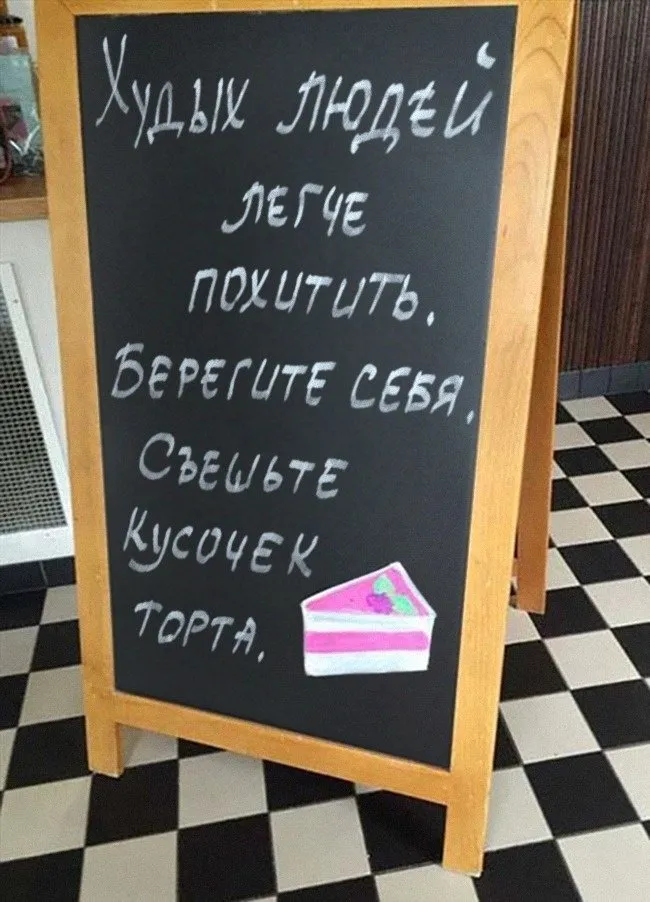 Худых людей
легче
похитить.
Берегите себя.
Съешьте
кусочек
торта.